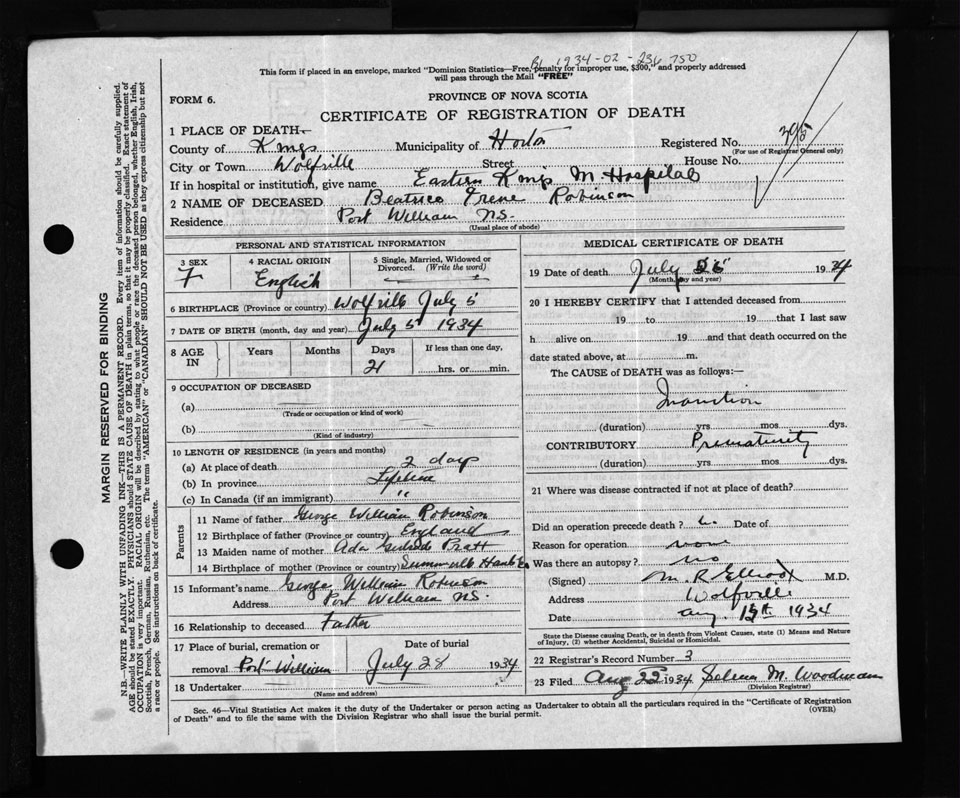 B 1934-02-236750
This form if placed in an envelope, marked "Dominion Statistics—Free, penalty for improper use, $300," and properly addressed
will pass through the Mail "FREE"
FORM 6.
PROVINCE OF NOVA SCOTIA
CERTIFICATE OF REGISTRATION OF DEATH
1 PLACE OF DEATH—
County of Kings Municipality of Horton Registered No.
(For use of Registrar General only)
City or Town Wolfville Street House No.
If in hospital or institution, give name Eastern Kings M. Hospital
2 NAME OF DECEASED Beatrice Irene Robinson
Residence Port William N.S.
(Usual place of abode)
PERSONAL AND STATISTICAL INFORMATION
3 SEX F
4 RACIAL ORIGIN English
5 Single, Married, Widowed or Divorced. (Write the word)
6 BIRTHPLACE (Province or country) Wolfville July 5
7 DATE OF BIRTH (month, day and year) July 5 1934
8 AGE IN Years Months Days 21 If less than one day, hrs. or min.
9 OCCUPATION OF DECEASED
(a)
(Trade or occupation or kind of work)
(b)
(Kind of industry)
10 LENGTH OF RESIDENCE (in years and months)
(a) At place of death 2 days
(b) In province Lifetime
(c) In Canada (if an immigrant) "
Parents
11 Name of father George William Robinson
12 Birthplace of father (Province or country) England
13 Maiden name of mother Ada Pratt
14 Birthplace of mother (Province or country) Summerville Hants Co
15 Informant's name George William Robinson
Address Port William N.S.
16 Relationship to deceased Father
17 Place of burial, cremation or removal Port William
Date of burial July 28 1934
18 Undertaker
(Name and address)
MEDICAL CERTIFICATE OF DEATH
19 Date of death July 26 1934
(Month, day and year)
20 I HEREBY CERTIFY that I attended deceased from
19 to 19 that I last saw
h alive on 19 and that death occurred on the
date stated above, at m.
The CAUSE of DEATH was as follows:—
Inanition
(duration) yrs. mos. dys.
CONTRIBUTORY Prematurity
(duration) yrs mos dys.
21 Where was disease contracted if not at place of death?
Did an operation precede death? Date of
Reason for operation none
Was there an autopsy? no
(Signed) M. R. Elliott M.D.
Address Wolfville
Date Aug. 15th 1934
State the Disease causing Death, or in death from Violent Causes, state (1) Means and Nature
of Injury, (2) whether Accidental, Suicidal or Homicidal.
22 Registrar's Record Number 3
23 Filed Aug 22 1934 Selena M. Woodman
(Division Registrar)
Sec. 46—Vital Statistics Act makes it the duty of the Undertaker or person acting as Undertaker to obtain all the particulars required in the "Certificate of Registration
of Death" and to file the same with the Division Registrar who shall issue the burial permit. (OVER)
MARGIN RESERVED FOR BINDING
N.B.—WRITE PLAINLY WITH UNFADING INK—THIS IS A PERMANENT RECORD. Every item of information should be carefully supplied.
AGE should be stated EXACTLY. PHYSICIANS should STATE CAUSE OF DEATH in plain terms, so that it may be properly classified. Exact statement of
OCCUPATION is very important. RACIAL ORIGIN will be described by stating to what people or race the deceased person belonged, whether English, Irish,
Scottish, French, German, Russian, Ruthenian, etc. The terms "AMERICAN" or "CANADIAN" SHOULD NOT BE USED as they express citizenship but not
a race or people. See instructions on back of certificate.